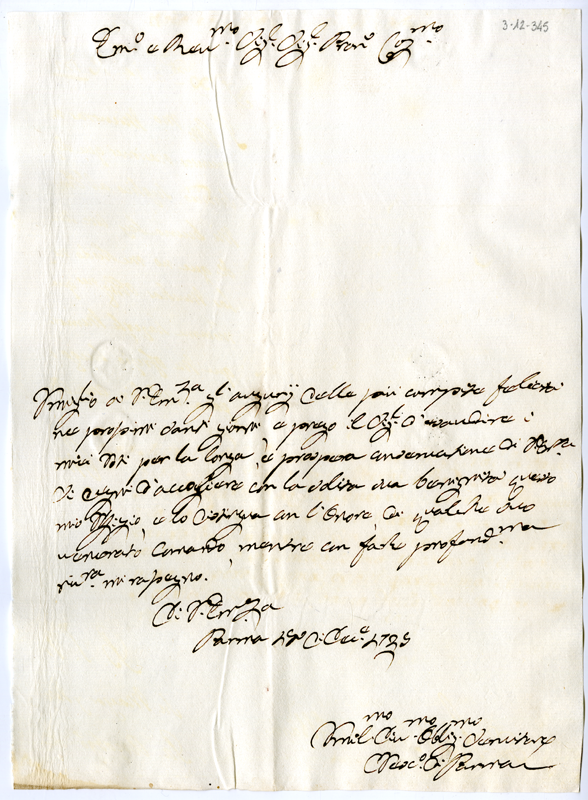 3-12-345
Em.o e Rev.mo Sig.r Sig.r Pron.o Col.mo
Umilio a V. Em.za gl'augurij delle più compite felicità
ne prossimi Santi giorni e prego il Sig.r d'esaudire i
miei Voti per la longa, e prospera conservazione di
Si degni d'accogliere con la solita sua benignità questo
mio Offizio, e lo distingua con l'onore di qualche suo
venerato comando, mentre con fare profond.ma
riv.za mi rassegno.
Di V. Em.za
Parma Dec.e 1725
Umil.mo Div.mo Oblig.mo Servitore
Vesc.o di Parma